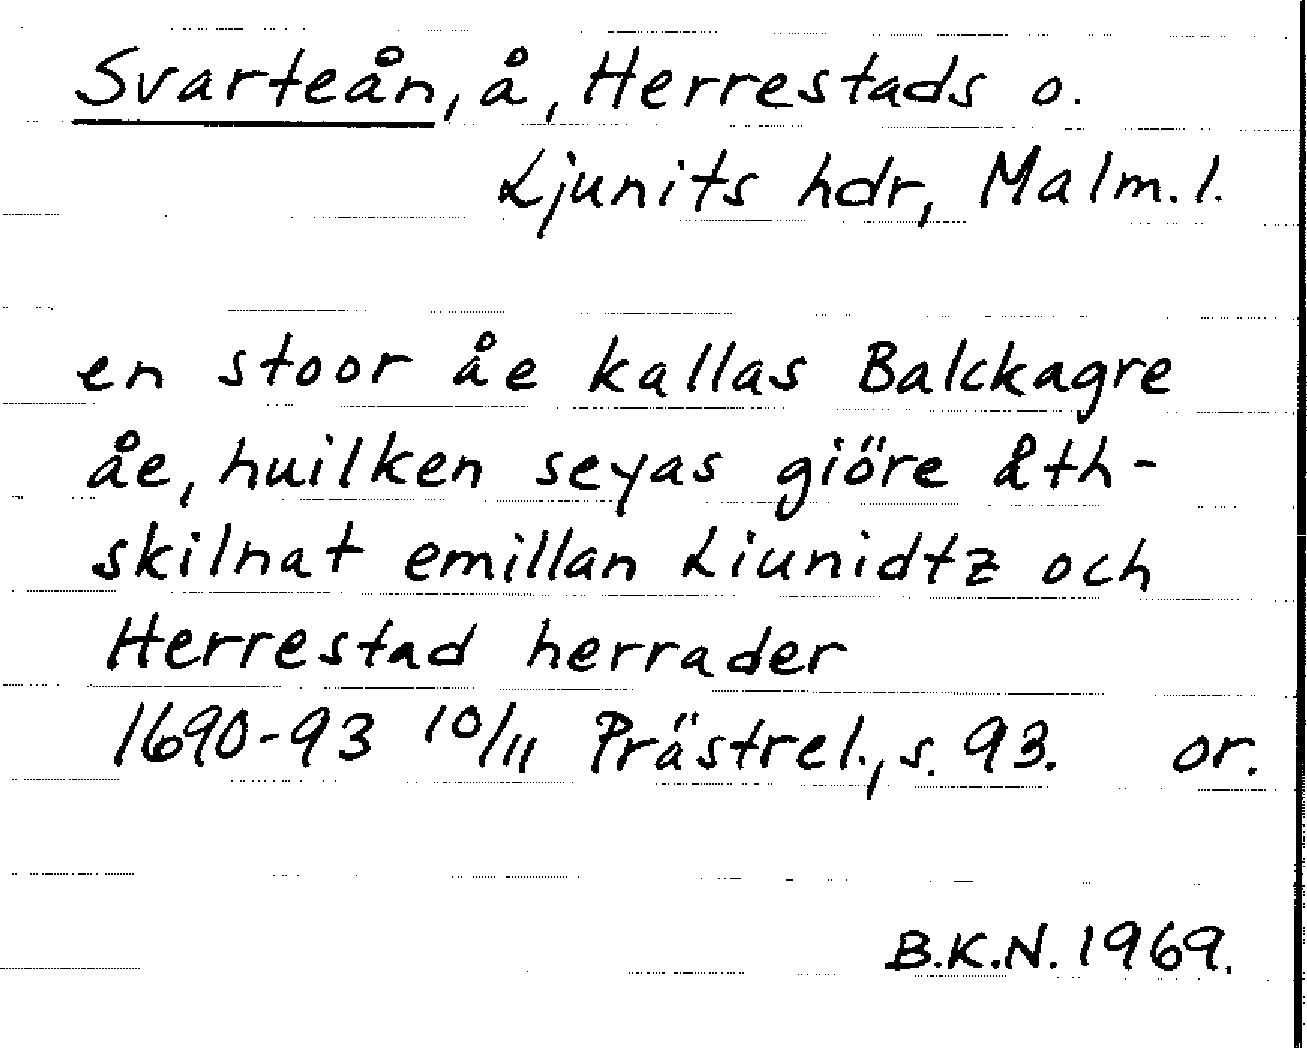 Svarteån, å, Herrestads o.
Ljunits hdr, Malm. l.
en stoor åe kallas Balckagre
åe, huilken seyas giöre åth-
skilnat emillan Liunidtz och
Herrestad herrader
1690-93 10/11 Prästrel., s. 93. or.
B.K.N. 1969.